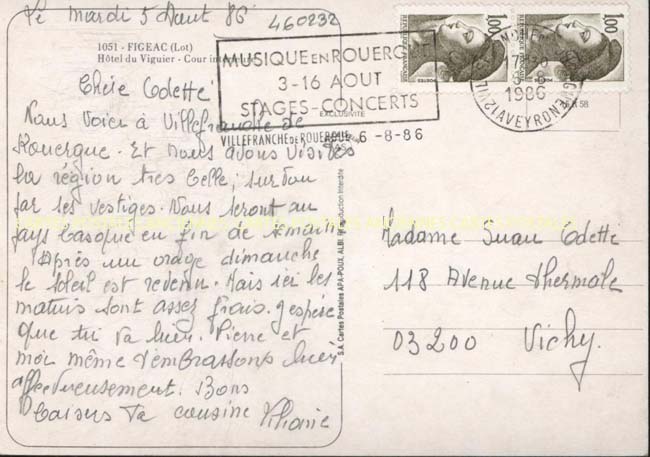 Le Mardi 5 Aout 86
460232
1051 - FIGEAC (Lot)
Hôtel du Viguier - Cour
MUSIQUE EN ROUERGUE
3-16 AOUT
STAGES-CONCERTS
VILLEFRANCHE DE ROUERGUE
6-8-86
EXCLUSIVITE
1,00
1,00
1986
AVEYRON
Chère Odette
Nous Voici à Villefranche de
Rouergue. Et Nous avons Visités
la région tres belle, surtou
par ses vestiges. Nous seront au
pays basque en fin de semaine
Après un orage dimanche
le soleil est revenu. Mais ici les
matins sont assez frais. J'espère
que tu va bien. Pierre et
moi même t'embrassons bien
affectueusement. Bons
baisers Ta cousine
S.A. Cartes Postales APA-POUX, ALBI. Reproduction Interdite
Madame Odette
118 Avenue Thermale
03200 Vichy.